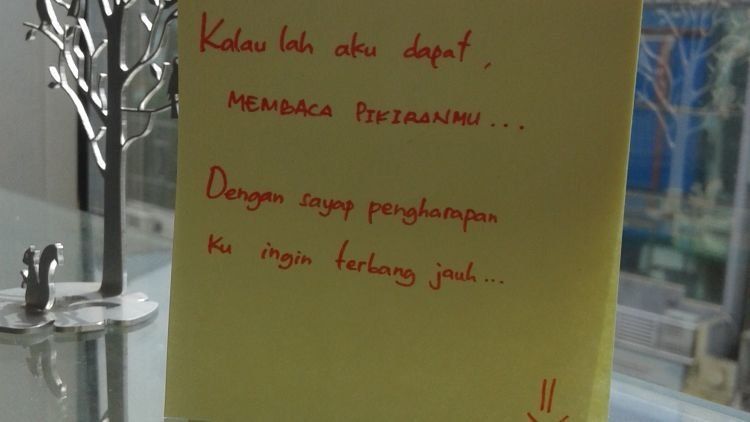 Kalau lah aku dapat,
MEMBACA PIKIRANMU...
Dengan sayap pengharapan
Ku ingin terbang jauh...